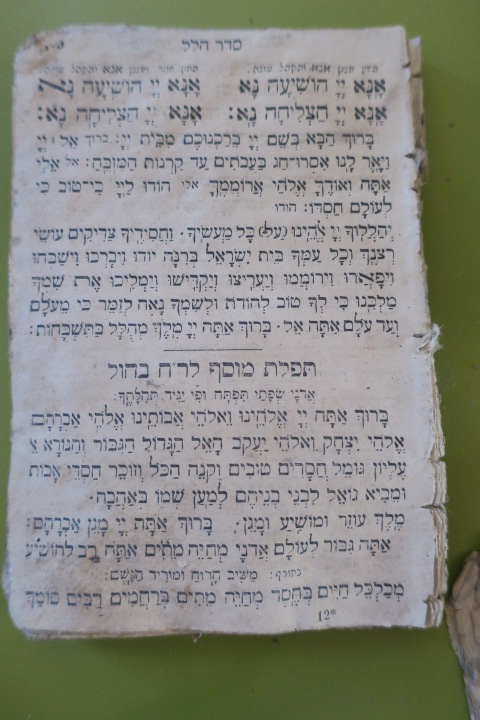 סדר הלל
חזן אנא והקהל עונה.
אָנָּא יְיָ הוֹשִׁיעָה נָּא אָנָּא יְיָ הוֹשִׁיעָה נָּא
אָנָּא יְיָ הַצְלִיחָה נָא: אָנָּא יְיָ הַצְלִיחָה נָא:
בָּרוּךְ הַבָּא בְּשֵׁם יְיָ בֵּרַכְנוּכֶם מִבֵּית יְיָ: ברוך אֵל יְיָ
וַיָּאֶר לָנוּ אִסְרוּ־חַג בַּעֲבֹתִים עַד קַרְנוֹת הַמִּזְבֵּחַ: אל אֵלִי
אַתָּה וְאוֹדֶךָּ אֱלֹהַי אֲרוֹמְמֶךָּ אלי הוֹדוּ לַיְיָ כִּי־טוֹב כִּי
לְעוֹלָם חַסְדּוֹ: הודו
יְהַלְלוּךָ יְיָ אֱלֹהֵינוּ (עַל) כָּל מַעֲשֶׂיךָ. וַחֲסִידֶיךָ צַדִּיקִים עוֹשֵׂי
רְצוֹנֶךָ וְכָל עַמְּךָ בֵּית יִשְׂרָאֵל בְּרִנָּה יוֹדוּ וִיבָרְכוּ וִישַׁבְּחוּ
וִיפָאֲרוּ וִירוֹמְמוּ וְיַעֲרִיצוּ וְיַקְדִּישׁוּ וְיַמְלִיכוּ אֶת שִׁמְךָ
מַלְכֵּנוּ כִּי לְךָ טוֹב לְהוֹדוֹת וּלְשִׁמְךָ נָאֶה לְזַמֵּר כִּי מֵעוֹלָם
וְעַד עוֹלָם אַתָּה אֵל. בָּרוּךְ אַתָּה יְיָ מֶלֶךְ מְהֻלָּל בַּתִּשְׁבָּחוֹת:
תפלת מוסף לר״ח בחול
אֲדֹנָי שְׂפָתַי תִּפְתָּח וּפִי יַגִּיד תְּהִלָּתֶךָ:
בָּרוּךְ אַתָּה יְיָ אֱלֹהֵינוּ וֵאלֹהֵי אֲבוֹתֵינוּ אֱלֹהֵי אַבְרָהָם
אֱלֹהֵי יִצְחָק וֵאלֹהֵי יַעֲקֹב הָאֵל הַגָּדוֹל הַגִּבּוֹר וְהַנּוֹרָא
עֶלְיוֹן גּוֹמֵל חֲסָדִים טוֹבִים וְקֹנֵה הַכֹּל וְזוֹכֵר חַסְדֵי אָבוֹת
וּמֵבִיא גוֹאֵל לִבְנֵי בְנֵיהֶם לְמַעַן שְׁמוֹ בְּאַהֲבָה.
מֶלֶךְ עוֹזֵר וּמוֹשִׁיעַ וּמָגֵן. בָּרוּךְ אַתָּה יְיָ מָגֵן אַבְרָהָם:
אַתָּה גִּבּוֹר לְעוֹלָם אֲדֹנָי מְחַיֵּה מֵתִים אַתָּה רַב לְהוֹשִׁיעַ
בחורף: מַשִּׁיב הָרוּחַ וּמוֹרִיד הַגֶּשֶׁם:
מְכַלְכֵּל חַיִּים בְּחֶסֶד מְחַיֵּה מֵתִים בְּרַחֲמִים רַבִּים סוֹמֵךְ
12*